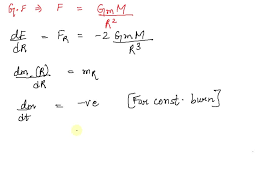 G.F ⇒ F = GmM / R²
dF/dR = F_R = -2 GmM / R³
dm(R)/dR = m_R
dm/dt = -ve [For const. burn]